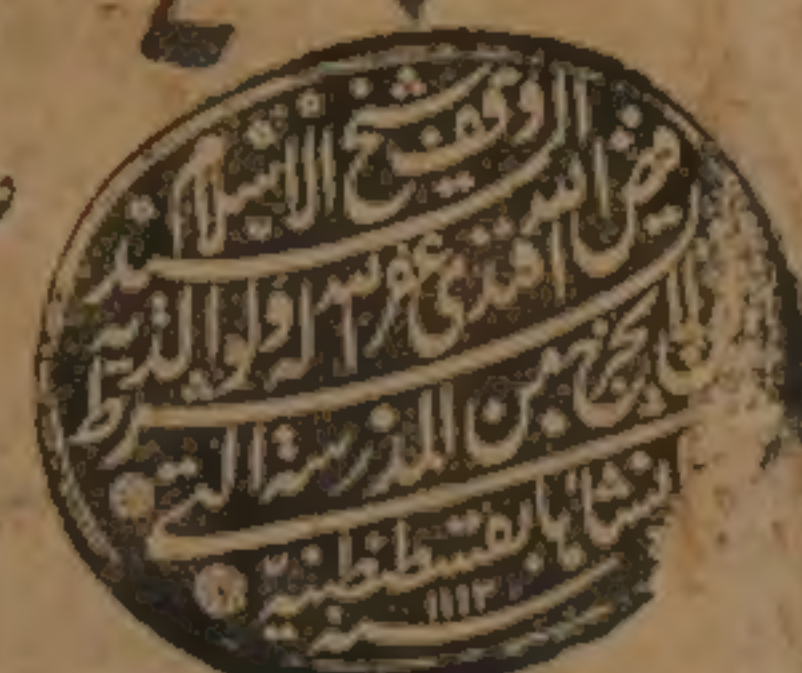 وقف شيخ الاسلام السيد
فيض الله افندى غفر الله له ولوالديه بشرط
ان لا يخرج المدرسة التي
انشاها بقسطنطينية
سنة ١١١٢